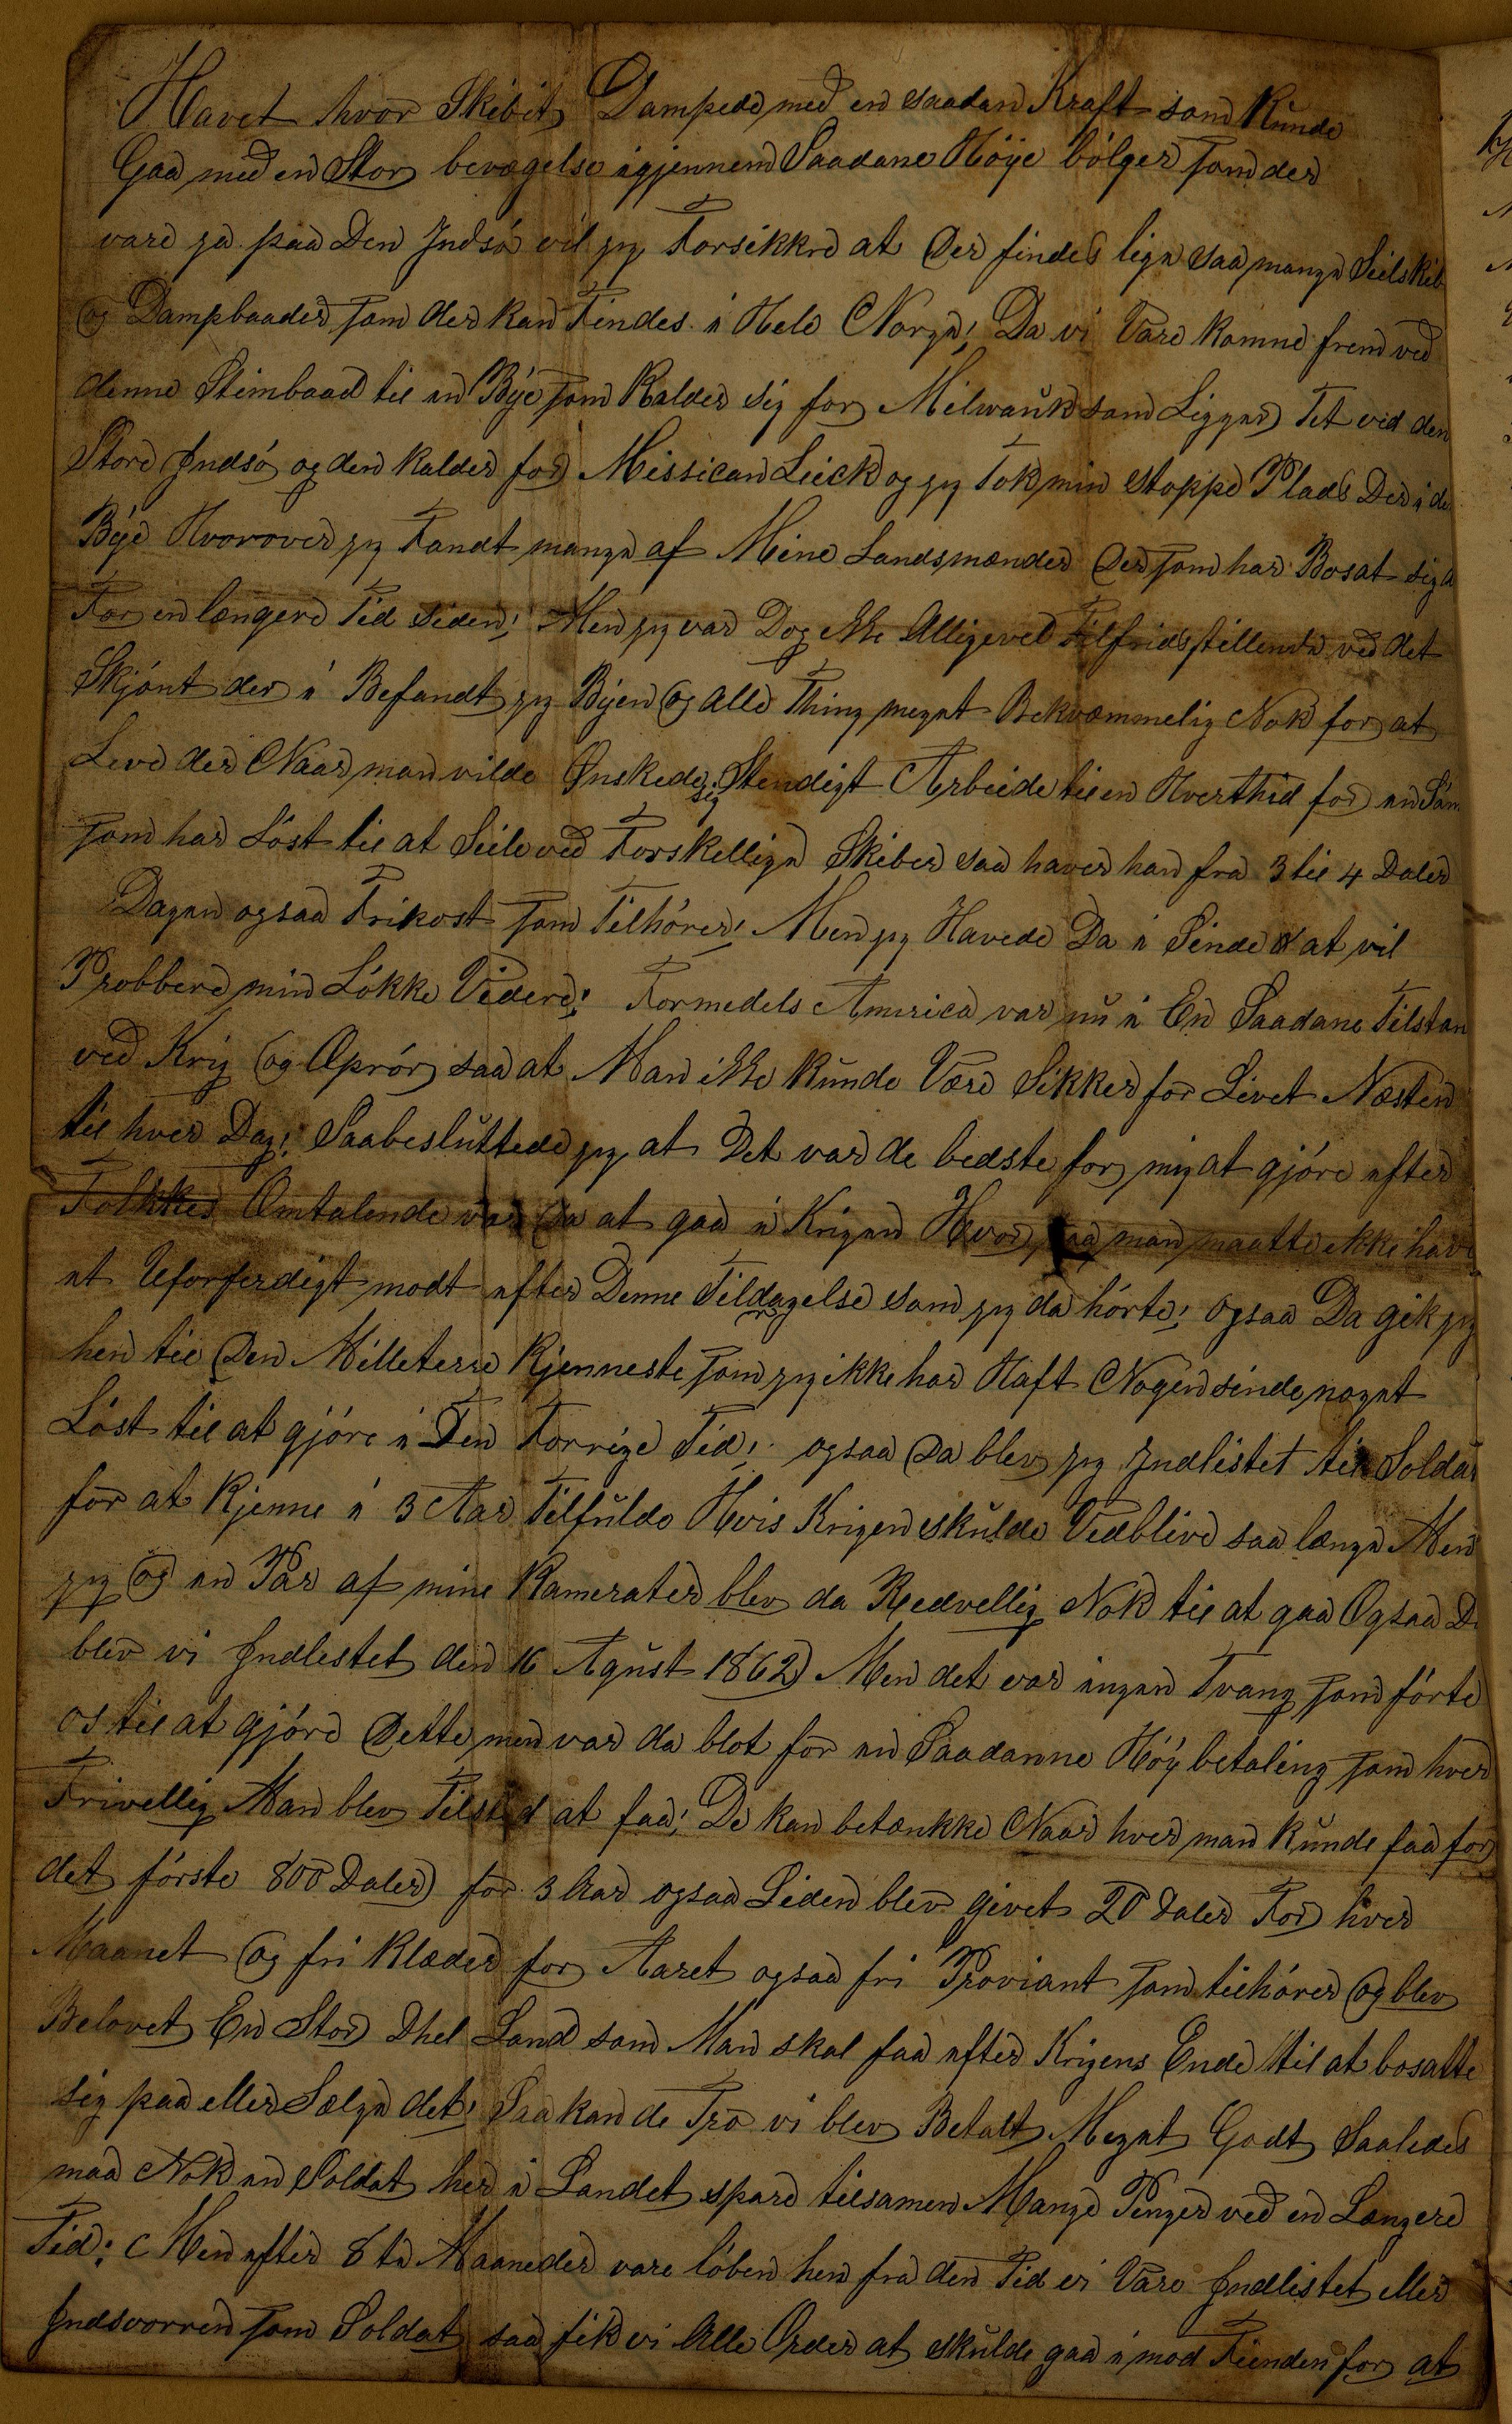 Havet hvor Skibet Dampede med en saadan Kraft som Kunde
Gaa med en Stor bevægelse igjennem Saadane Höye bölger som der
vare ja paa Den Indsö vil jeg Forsikkre at Der findes lige saa mange Seilskib
og Dampbaader som der kan Findes i Hele Norge! Da vi Vare komne frem ved
denne Stimbaad til en Bye som Kalder sig for Milwauk som Ligger Tet ved den
Store Indsö og den kalder for Missican Leick og jeg Tok min stoppe Plads Der i de
Bye Hvorover jeg Fandt mange af Mine Landsmænder Der som har Bosat sig
For en længere Tid siden! Men jeg var Dog ikke Alligevel Tilfridsstillende ved det
Skjönt der i Befandt jeg Byen og alle Thing meget Bekvæmmelig Nok for at
Leve der Naar man vilde Ønskede sig Stendigt Arbeide til en Hverthid for en Söm
som har Löst til at Seile ved Forskellige Skiber saa haver han fra 3 til 4 Daler
Dagen ogsaa Frikost som Tilhörer! Men jeg Havede Da i Sinde at vil
Probbere min Lökke Videre! Formedels America var nu i En Saadane Tilstan
ved Krig og Oprör saa at Man ikke Kunde Være Sikker for Livet Næsten
til hver Dag! Saa besluttede jeg at Det var de bedste for mig at gjöre efter
Folkkes Omtalende var da at gaa i Krigen Hvor saa man maatte ikke have
et Uforferdigt modt efter Denne Tildragelse som jeg da hörte! ogsaa Da gik jeg
hen til Den Milleterre Kjenneste som jeg ikke har Haft Nogensinde noget
Löst til at gjöre i Den Forrige Tid! ogsaa Da blev jeg Indlistet til Soldat
for at Kjenne i 3 Aar Tilfulde Hvis Krigen skulde Vedblive saa længe Men
jeg og en Par af mine Kamerater blev da Redvellig Nok til at gaa Ogsaa D
blev vi Indlestet den 16 Agust 1862 Men det var ingen Tvang som förte
os til at gjöre Dette men var da blot for en Saadanne Höy betaling som hver
Frivellig Man blev Tilsted at faa! De kan betænkke Naar hver man Kunde faa for
det förste 800 Daler for 3 Aar ogsaa Siden blev givet 20 Daler For hver
Maanet og fri Klæder for Aaret ogsaa fri Proviant som tilhörer og blev
Belovet En Stor Dhel Land som Man skal faa efter Krigens Ende til at bosatte
sig paa eller Sælge det! Saa kan de Tro vi blev Betalt Meget Godt Saaledes
maa Nok en Soldat her i Landet spare tilsamen Mange Penger ved en Længere
Tid! Men efter 8te Maaneder vare löben hen fra den Tid vi Vare Indlistet eller
Indsvorren som Soldat saa fik vi Alle Order at skulde gaa i mod Fienden for at